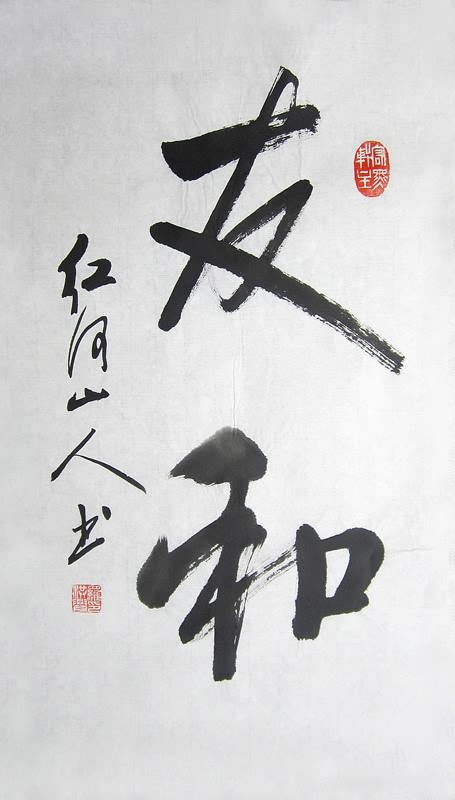 友和
红河山人书